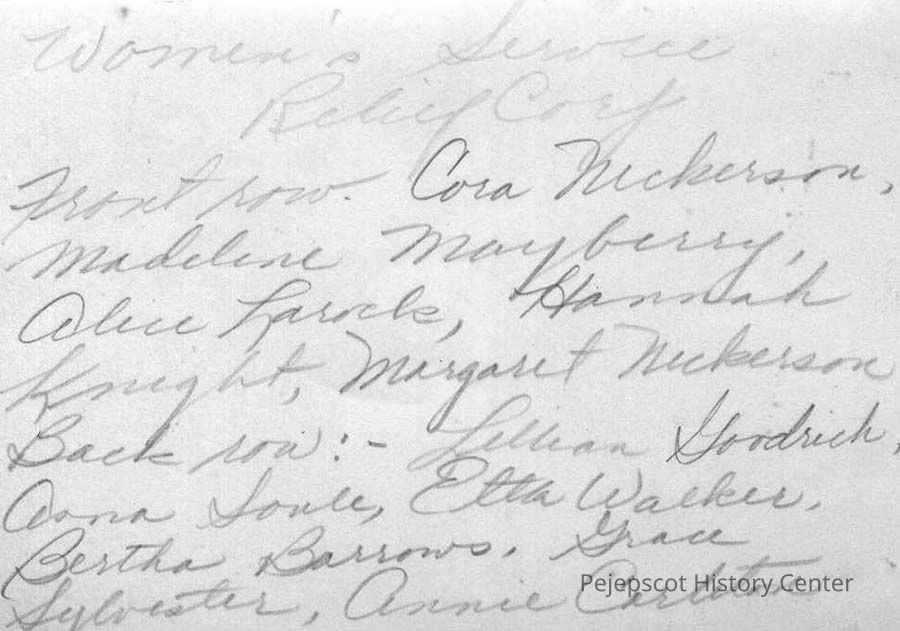 Women's Service
Relief Corp
Front row. Cora Nickerson,
Madeline Mayberry,
Alice Larock, Hannah
Knight, Margaret Nickerson
Back row:- Lillian Goodrich,
Anna Soule, Etta Walker,
Bertha Barrows. Grace
Sylvester, Annie Carleton
Pejepscot History Center